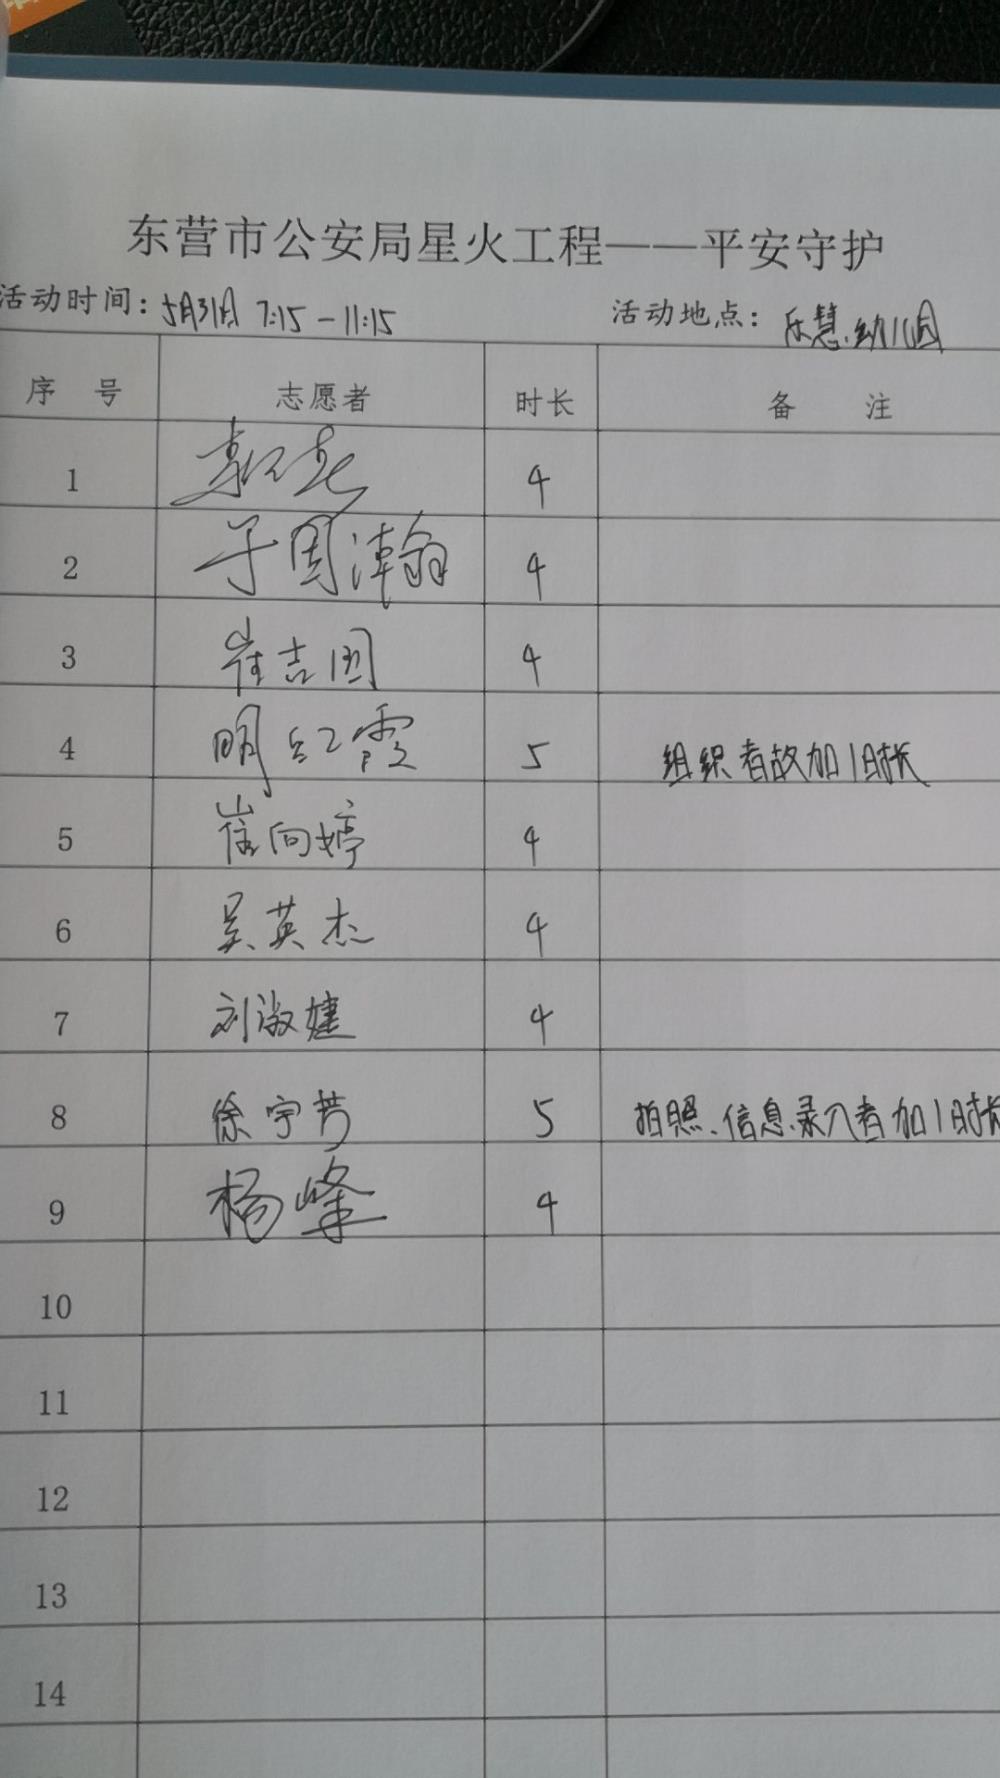 东营市公安局星火工程——平安守护
活动时间：5月31日 7:15-11:15 活动地点：乐慧幼儿园
序 号 志愿者 时长 备 注
1 4
2 于周瀚 4
3 崔吉国 4
4 明红霞 5 组织者故加1时长
5 崔向婷 4
6 吴英杰 4
7 刘淑婕 4
8 徐宇芳 5 拍照、信息录入者加1时长
9 杨峰 4
10
11
12
13
14